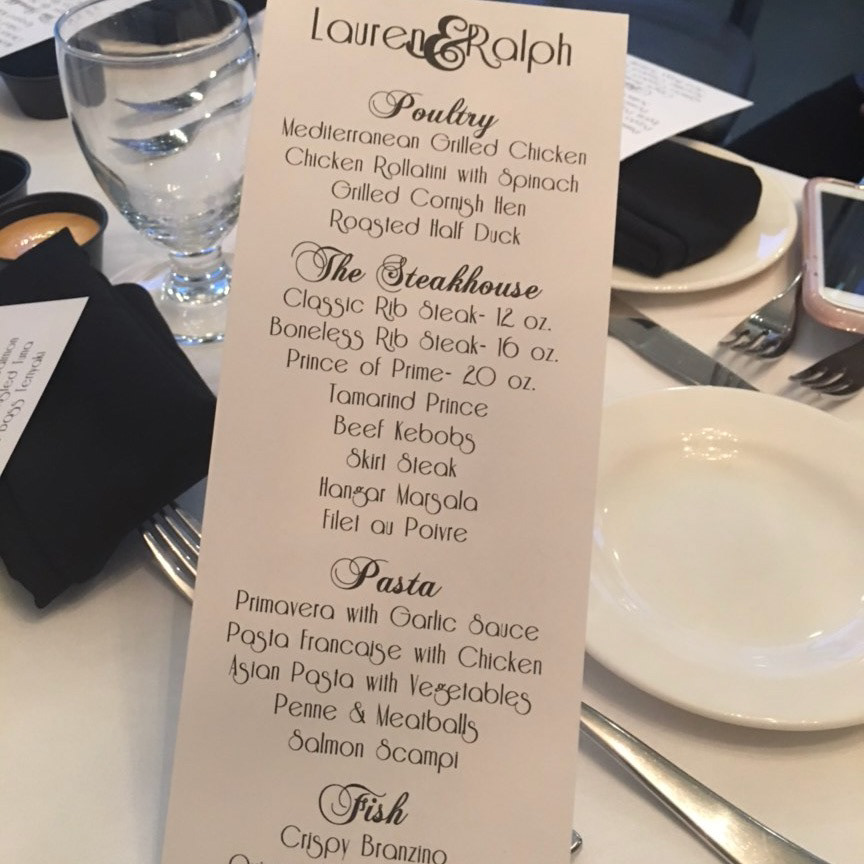 Lauren & Ralph
Poultry
Mediterranean Grilled Chicken
Chicken Rollatini with Spinach
Grilled Cornish Hen
Roasted Half Duck
The Steakhouse
Classic Rib Steak- 12 oz.
Boneless Rib Steak- 16 oz.
Prince of Prime- 20 oz.
Tamarind Prince
Beef Kebobs
Skirt Steak
Hangar Marsala
Filet au Poivre
Pasta
Primavera with Garlic Sauce
Pasta Francaise with Chicken
Asian Pasta with Vegetables
Penne & Meatballs
Salmon Scampi
Fish
Crispy Branzino